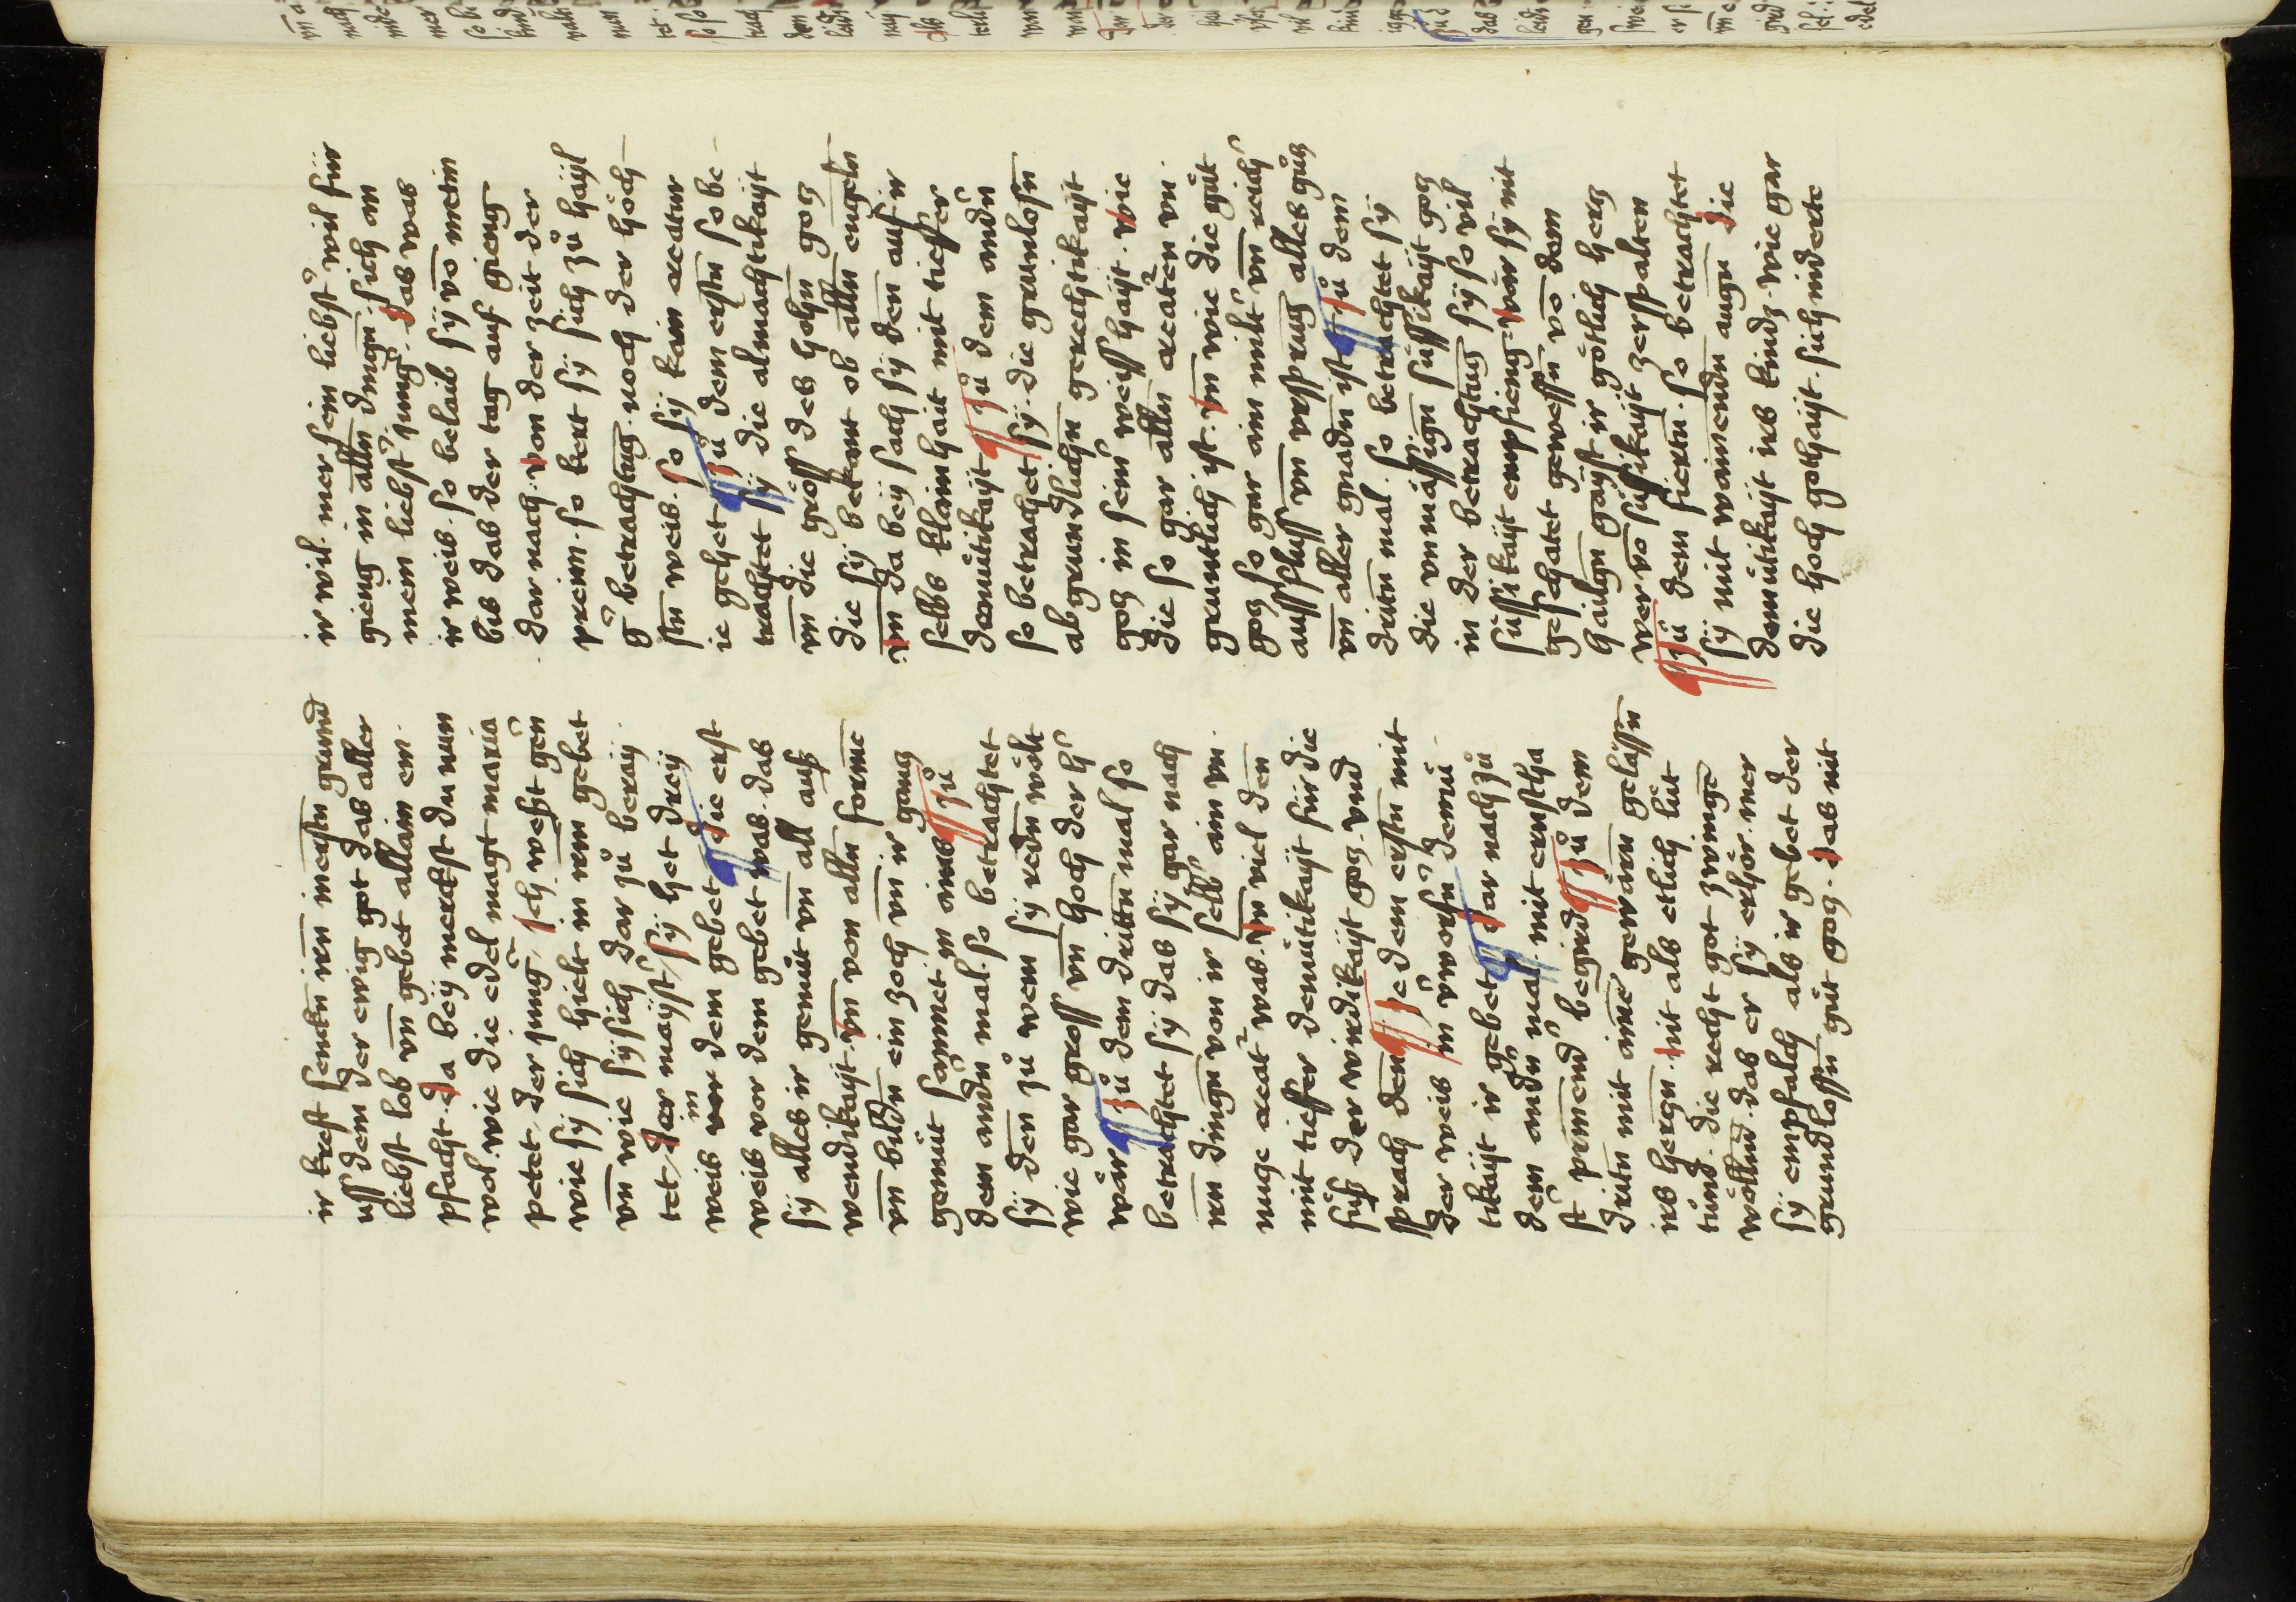 ir kreft senckn iren in erstn grund
uss dem der ewig got das aller
liebst lob vn̄ gebet allain en
pfacht. Da beÿ merckst du nun
wol. wie die edel magt maria
petet. der jung / Ich west gern
wie sÿ sich hielt in irem gebet
vn̄ wie sÿ sich dar zů beraÿ
tet / Der maÿst / Sÿ het dreÿ
weis in dem gebet Die erst
weis vor dem gebet was. das
sÿ alles ir gemüt vn̄ all auß
wendikaÿt. vn̄ von alln forme
vn̄ bildn ein zoch vn̄ ir gancz
gemüt samnet in aines Zů
dem andn mal. so betrachtet
sÿ den zů wem sÿ redn wolt
wie gar gross vn̄ hoch der h̓
wär Zů dem drittn mal so
betrachtet sÿ das sÿ gar nach
irn dingn von ir selb ain vn
nucze creat̓ was. vn̄ viel den
mit tieffer demütikaÿt für die
füß der wirdikaÿt gocz. vnd
sprach den Ie dem erstn mit
der weis in v̓worfn̄ demü
tikaÿt ir gebet Dar nach zů
dem andn mal. mit ernstha
ft primend̓ begird Zů dem
dritn mit aine gewarn gelässn
irs herczn. Nit als etlich lüt
tünd. die recht got zwingē
wölln̄d. das er sÿ erhör. mer
sÿ empfalch als ir gebet der
grundlossn güt gocz. Das nit
ir wil. mer sein liebst̓ wil für
gieng in alln dingn. sich an
mein liebst̓ jung̓. Das was
ir weis. so belaib sÿ vō metin
bis das der tag auf gieng
dar nach. von der zeit der
preim. so kert sÿ sich zů haÿl
g̓ betrachtug. noch der höch
stn weis. So sÿ kain creatur
ie gehet Zů dem erstn so be
trachtet sÿ die almächtikaÿt
vn̄ die gröss des hohn gocz
die sÿ bekant ob alln engeln
vn̄ da beÿ sach sÿ den auf ir
selbs klainhait mit tieffer
demütikaÿt Zů dem andn
so betrachtet sÿ. die grunlosn
abgrundlichn gerechtikaÿt
gocz in sein̓ weisshaÿt. wie
die so gar alln createn vn
gruntlich ist. vn̄ wie die güt
gocz so gar ain milt̓ vn̄ reich̓
aussfluss vn̄ vrsprug alles gücz
vn̄ aller gnadn ist Zů dem
dritn mal. so betrachtet sÿ
die vnmässign süssikaÿt gocz
in der betrachtug sÿ so vil
süssikaÿt empfieng. wär sÿ nit
geschatet gewessn vō dem
hailgn gaÿst ir götlich hercz
wer vō süssikaÿt zerspalten
Zů dem fiertn. so betrachtet
sÿ mit wainendn augn Die
demütikaÿt irs kindz. wie gar
die hoch gothaÿt. sich niderte